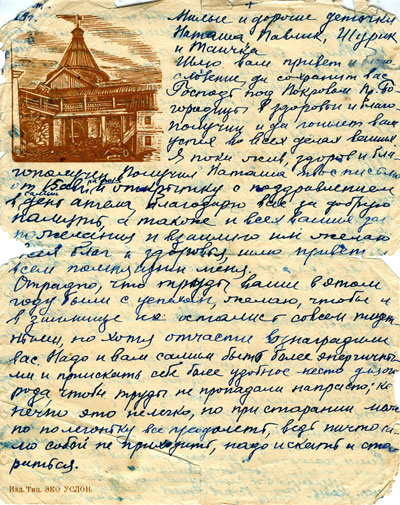 Милые и дорогие деточки
Наташа Павлик, Шурик
и Танечка
Шлю вам привет и благо
словение да сохранит вас
Господь под Покровом Пр. Бо
городицы в здоровьи и благо
получии и да пошлет вам
успех во всех делах ваших
Я пока жив, здоров и бла
гополучен. Получил Наташа твое письмо
от и открытку с поздравлением
с днем ангела благодарю вас за добрую
память, а также и всех ваших за
пожелания и взаимно им желаю
всех благ и здоровья, шлю привет
всем помнящим меня.
Отрадно, что труды ваши в этом
году были с успехом, желаю, чтобы и
в не остались совсем тщет
ными, но хотя отчасти вознаградили
вас. Надо и вам самим быть более энергичны
ми и приискать себе более удобное место для ого
рода чтобы труды не пропадали напрасно; ко
нечно это нелегко, но при старании мож
но полегоньку все преодолеть, ведь ничто са
мо собой не приходит, надо искать и ста
раться.
Изд. Тип. ЭКО УСЛОН.